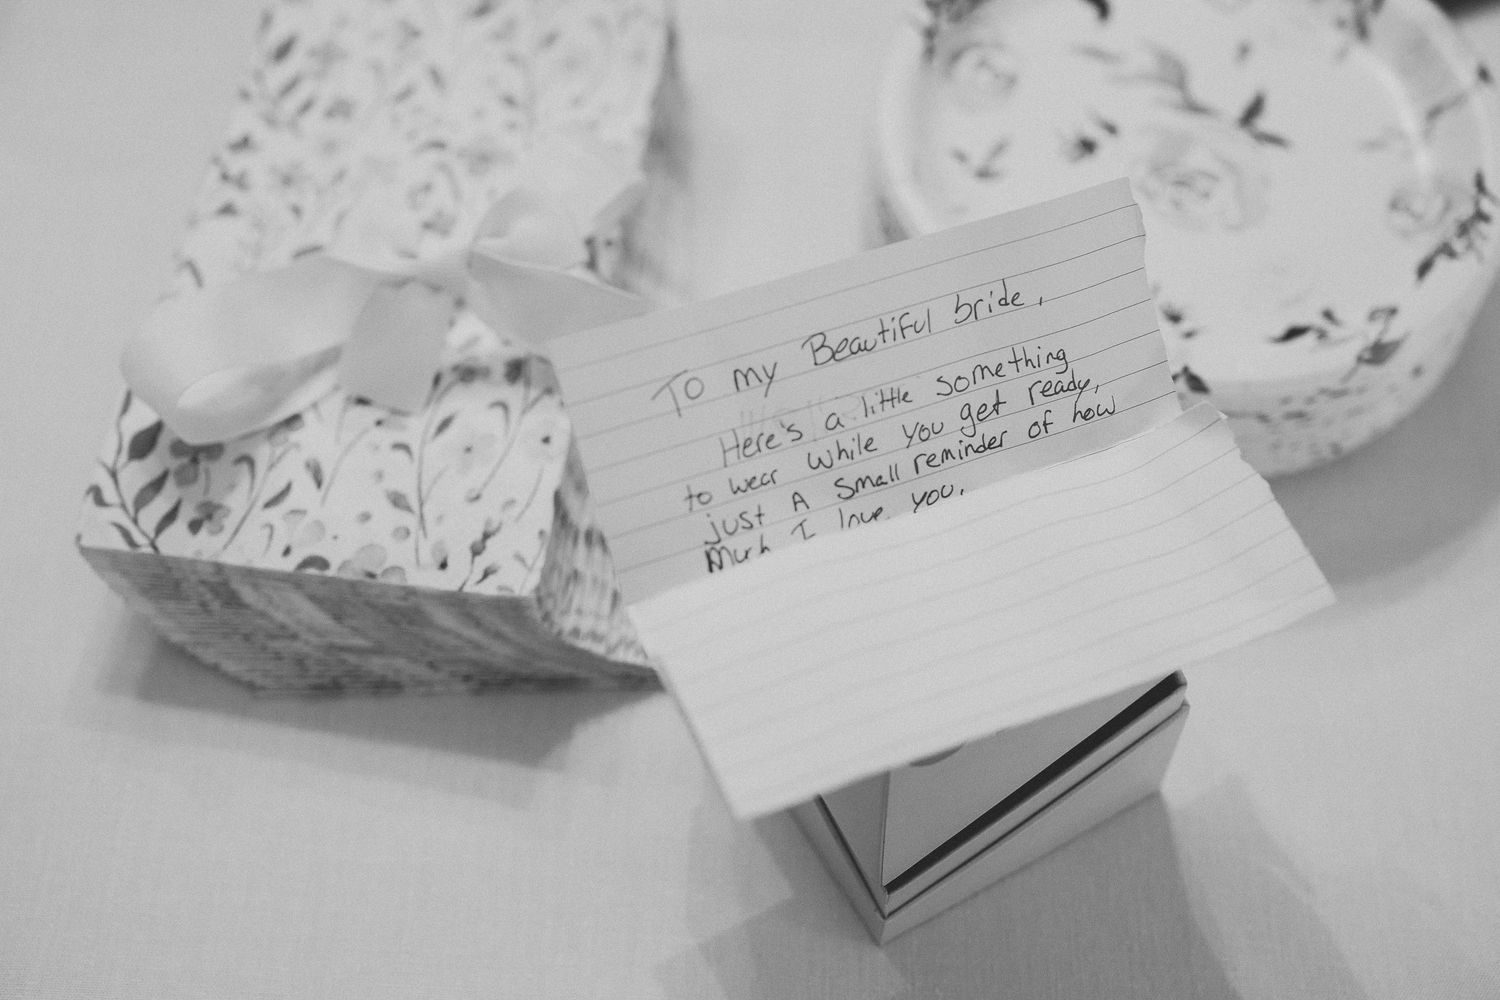 To my Beautiful bride,
Here's a little something
to wear while you get ready,
just A small reminder of how
Much I love you.